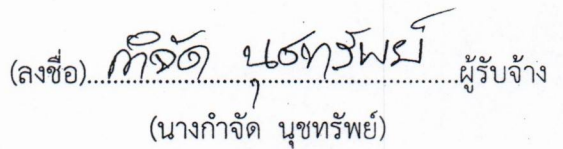 (ลงชื่อ)กำจัด นุชทรัพย์ผู้รับจ้าง
(นางกำจัด นุชทรัพย์)